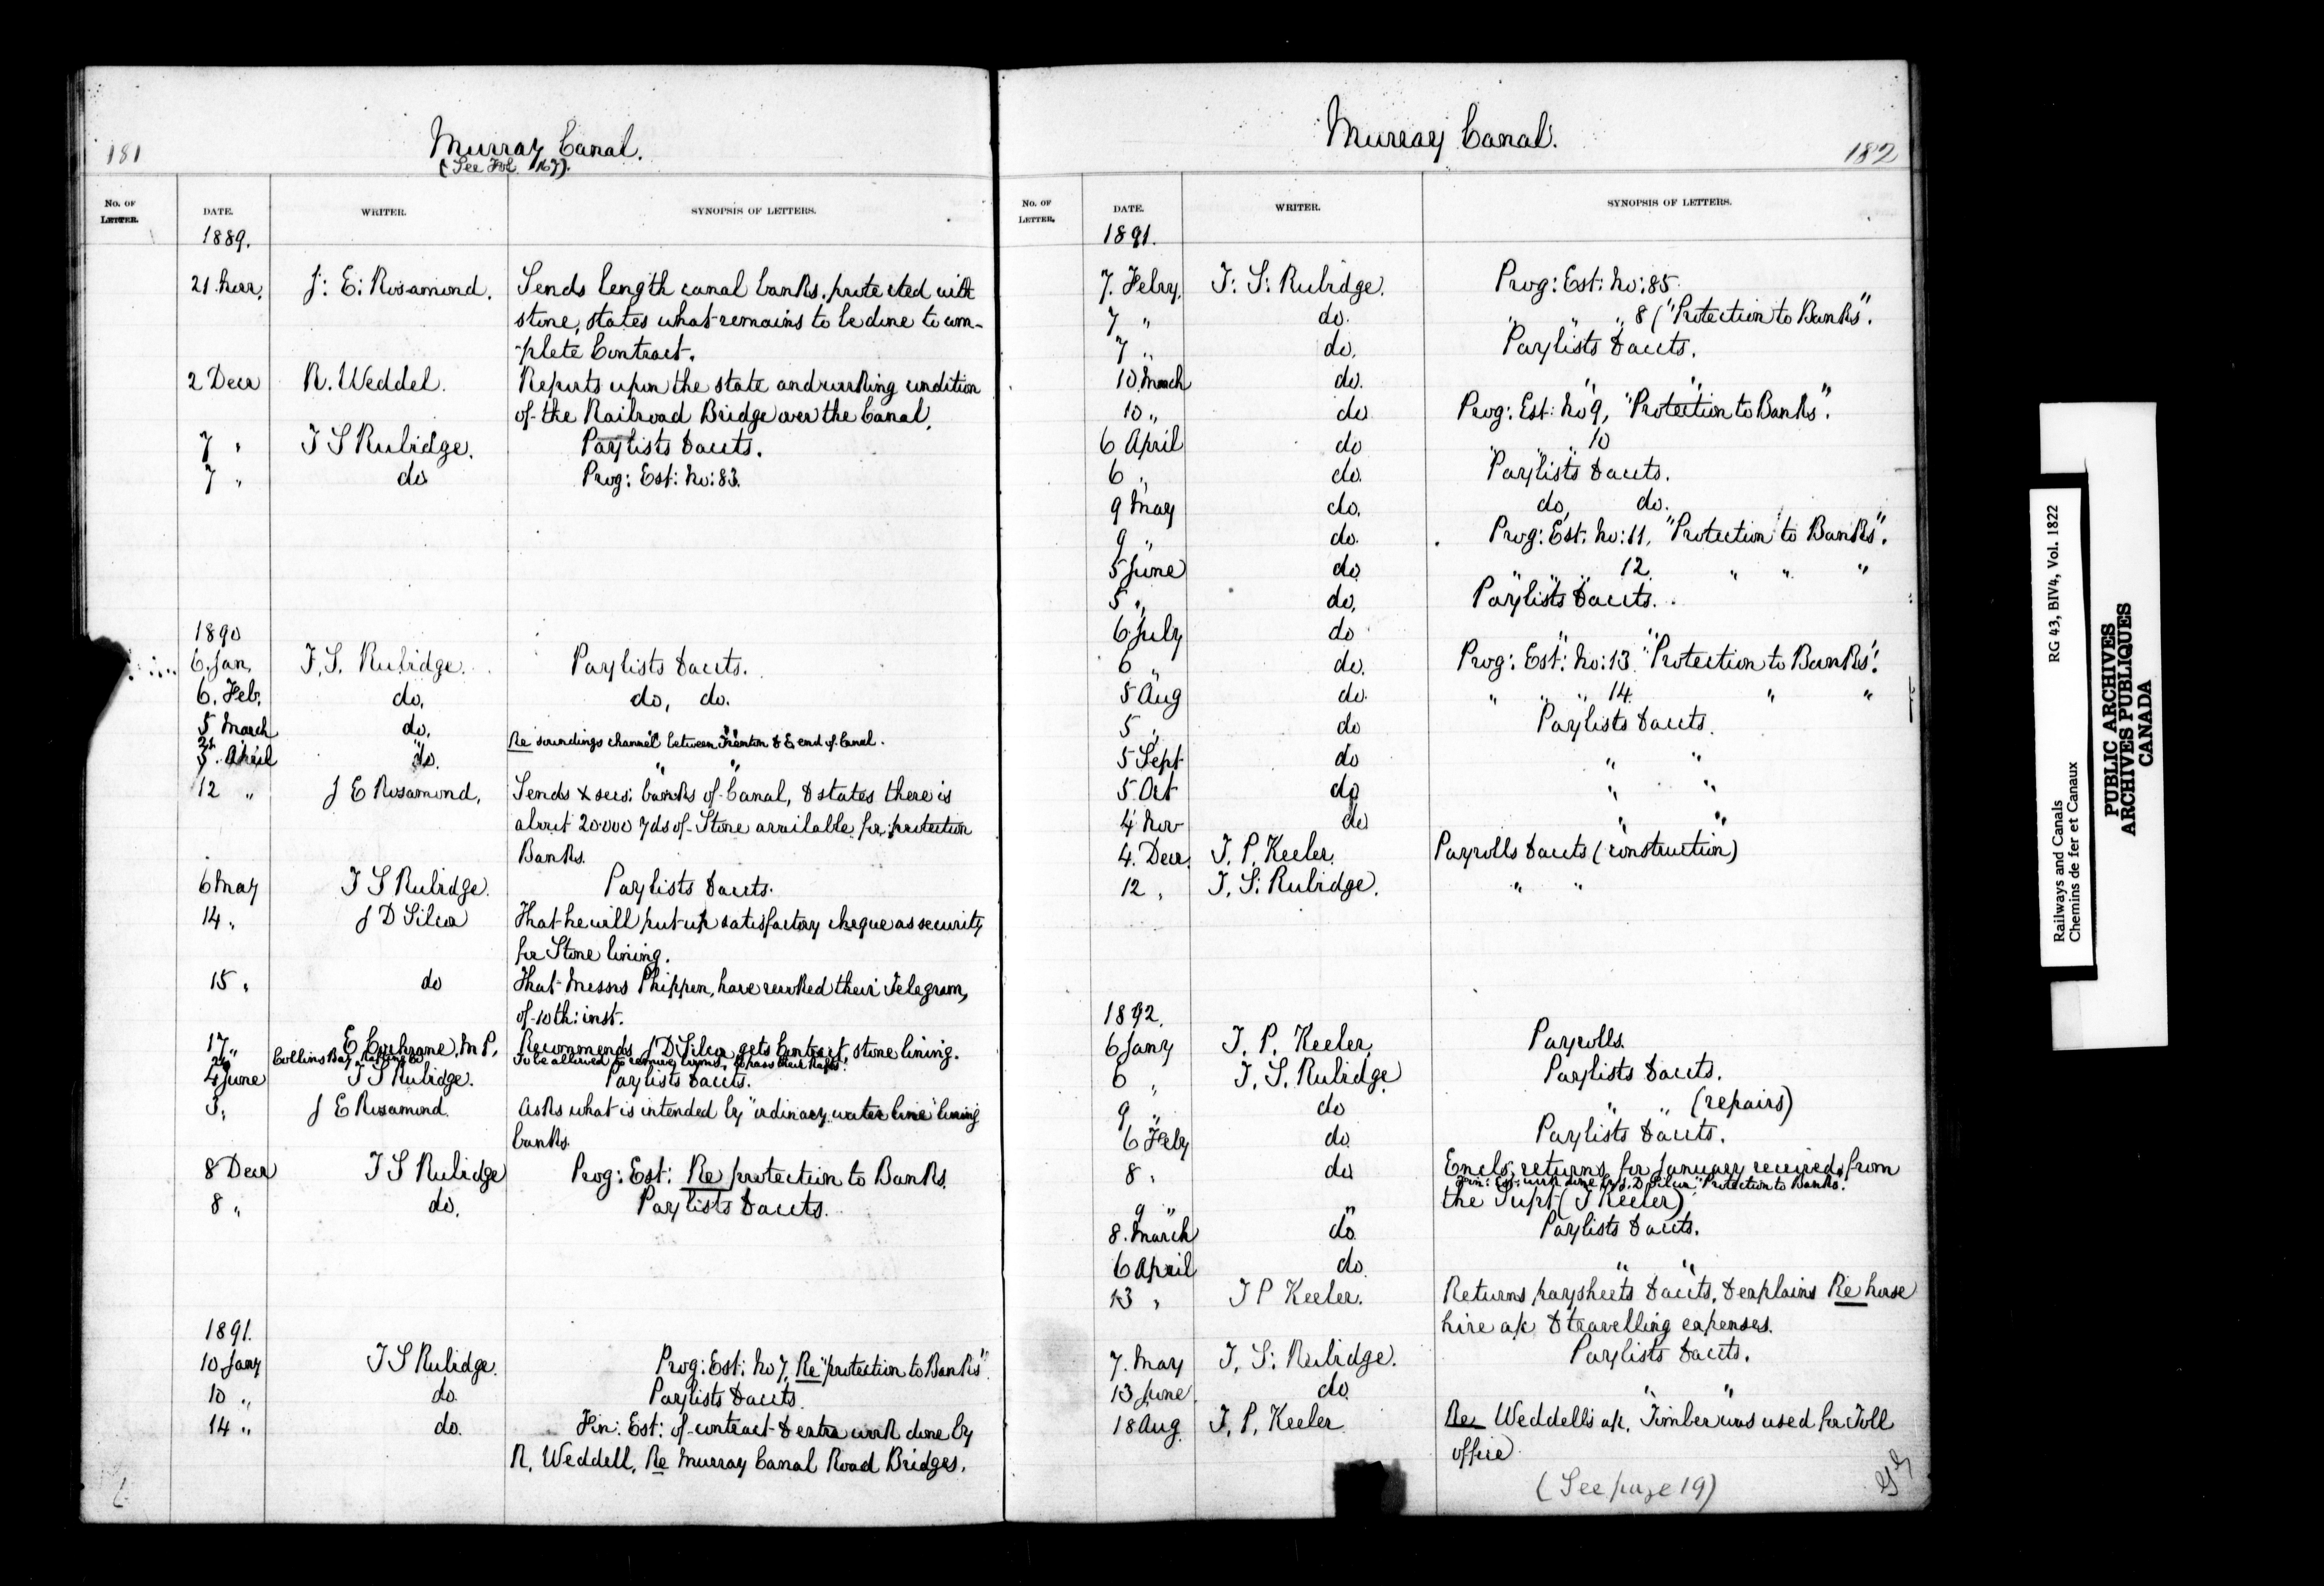 181
Murray Canal.
(See Fol 167).
No. OF LETTER. DATE. WRITER. SYNOPSIS OF LETTERS.
1889.
21 Novr. J: E: Rosamond. Sends length canal banks, protected with
stone, states what remains to be done to com-
-plete Contract.
2 Decr R. Weddel. Reports upon the state and working condition
of the Railroad Bridge over the Canal.
7 " T S Rubidge. Paylists & accts.
7 " do Prog: Est: No: 83.
1890
6. Jan, T. S. Rubidge. Paylists & accts.
6. Feb. do, do, do.
5 March do. " "
21 " Re soundings channel between Trenton & E end of Canal.
5. April do. " "
12 " J E Rosamond, Sends X secs: banks of Canal, & states there is
about 20.000 yds of Stone available for protection
Banks.
6 May T S Rubidge. Paylists & accts.
14 " J D Silcox That he will put up satisfactory cheque as security
for Stone lining.
15 " do That Messrs Phippen, have revoked their Telegram,
of 10th: inst.
17 " E Cochrane, M P, Recommends J D Silcox gets Contract stone lining.
26 Collins Bay Rafting Co To be allowed to remove to pass their Rafts.
4 June T S Rubidge. Paylists & accts.
3 " J E Rosamond. Asks what is intended by "ordinary water line" lining
banks.
8 Decr T S Rubidge Prog: Est: Re protection to Banks.
8 " do. Paylists & accts.
1891.
10 Jany T S Rubidge. Prog: Est: No 7, Re "protection to Banks".
10 " do. Paylists & accts.
14 " do. Fin: Est: of contract & extra work done by
R. Weddell, Re Murray Canal Road Bridges.
Murray Canal.
182
No. OF LETTER. DATE. WRITER. SYNOPSIS OF LETTERS.
1891.
7. Febry. T: S: Rubidge. Prog: Est: No: 85
7 " do. " " " 8 ("Protection to Banks".
7 " do. Paylists & accts.
10 March do. " "
10 " do Prog: Est: No 9, "Protection to Banks".
6 April do " " " 10
6 " do. Paylists & accts.
9 May do. do, do.
9 " do. Prog: Est: No: 11, "Protection to Banks".
5 June do. " " " 12 " " "
5 " do. Paylists & accts.
6 July do " "
6 " do. Prog: Est: No: 13 "Protection to Banks".
5 Aug do. " " " 14 " "
5 " do Paylists & accts.
5 Sept do " "
5 Oct do " "
4 Nov do " "
4. Decr. T. P. Keeler. Payrolls & accts (construction)
12 " T. S: Rubidge. " "
1892.
6 Jany T. P. Keeler Payrolls.
6 " T. S. Rubidge Paylists & accts.
9 " do " " (repairs)
6 Feby do. Paylists & accts.
8 " do Encls, returns for January received from
the Supt (T Keeler)
9 " " Fin: Est: work done by J. D. Silcox "Protection to Banks".
8. March do. Paylists & accts.
6 April do. " "
13 " T P Keeler. Returns paysheets & accts, & explains Re horse
hire a/c & travelling expenses.
7. May T. S: Rubidge. Paylists & accts.
13 June do. " "
18 Aug. T. P. Keeler Re Weddell's a/c. Timber was used for Toll
office.
(See page 19)
RG 43, BIV4, Vol. 1822
Railways and Canals
Chemins de fer et Canaux
PUBLIC ARCHIVES
ARCHIVES PUBLIQUES
CANADA